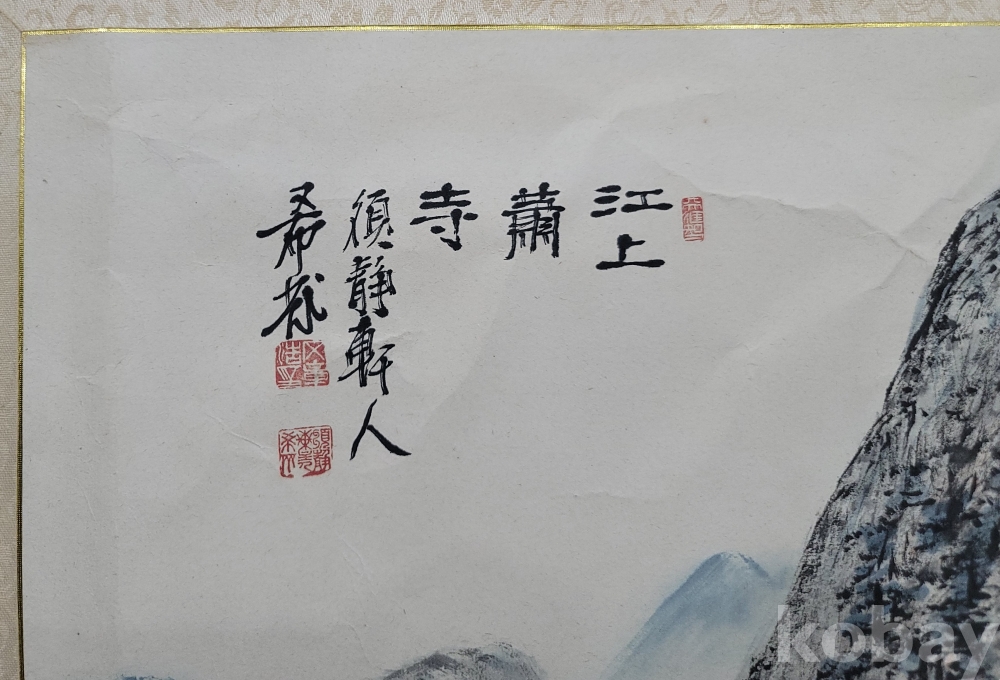 江上
蕭
寺
須静軒人
希
kobay